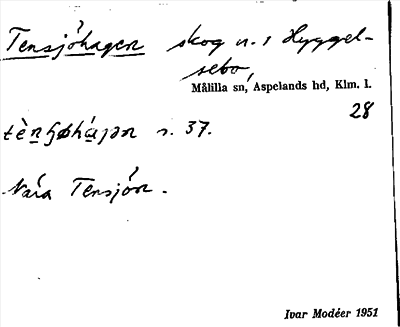 Tensjöhagen skog n. i Hyggel-
sebo,
Målilla sn, Aspelands hd, Klm. l.
28
s. 37.
Nära Tensjön.
Ivar Modéer 1951